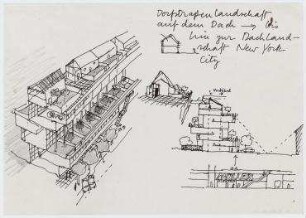 Dorfstraßen Landschaft
auf dem Dach →
bis zur Dachland-
schaft New York
City